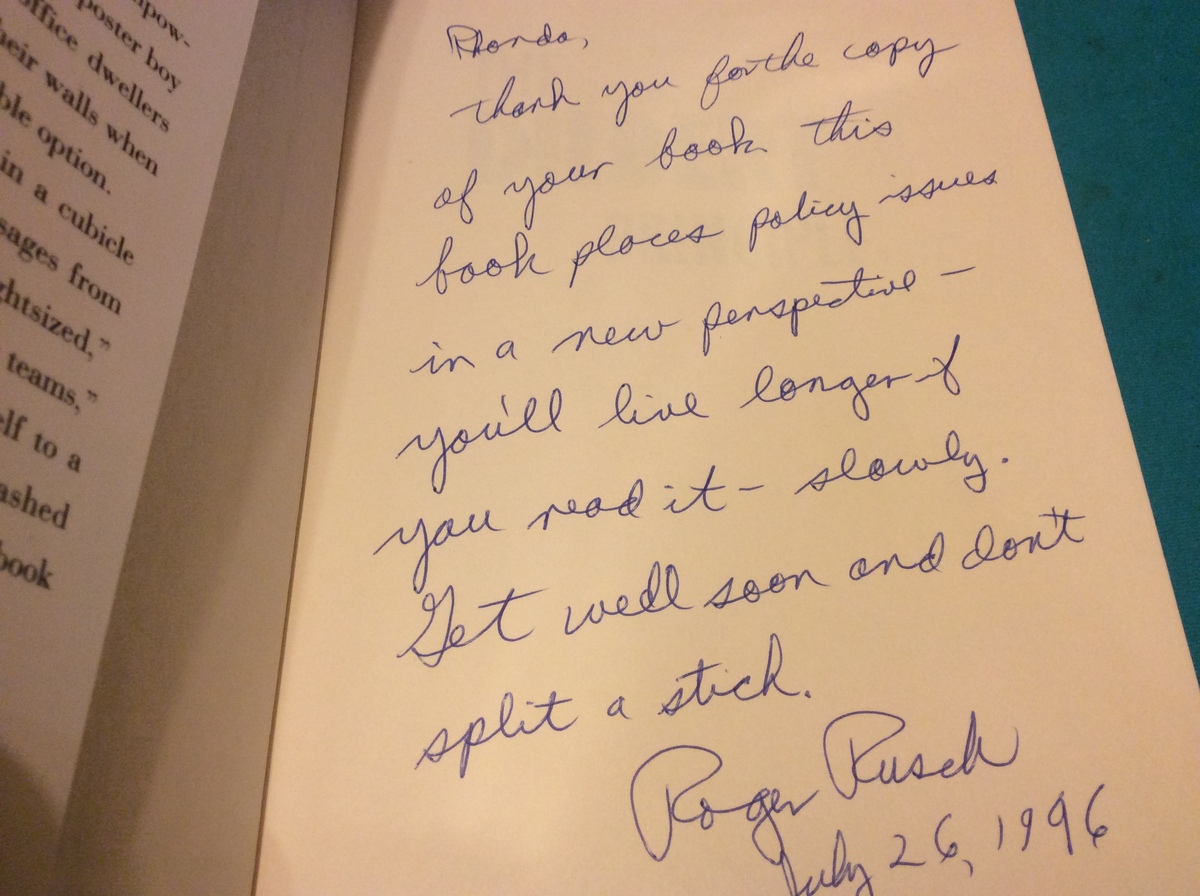 mpow-
poster boy
office dwellers
heir walls when
ble option.
in a cubicle
sages from
ghtsized,"
teams,"
elf to a
ashed
book
Rhonda,
thank you for the copy
of your book this
book places policy issues
in a new perspective -
you'll live longer if
you read it - slowly.
Get well soon and don't
split a stich.
Roger Rusch
July 26, 1996